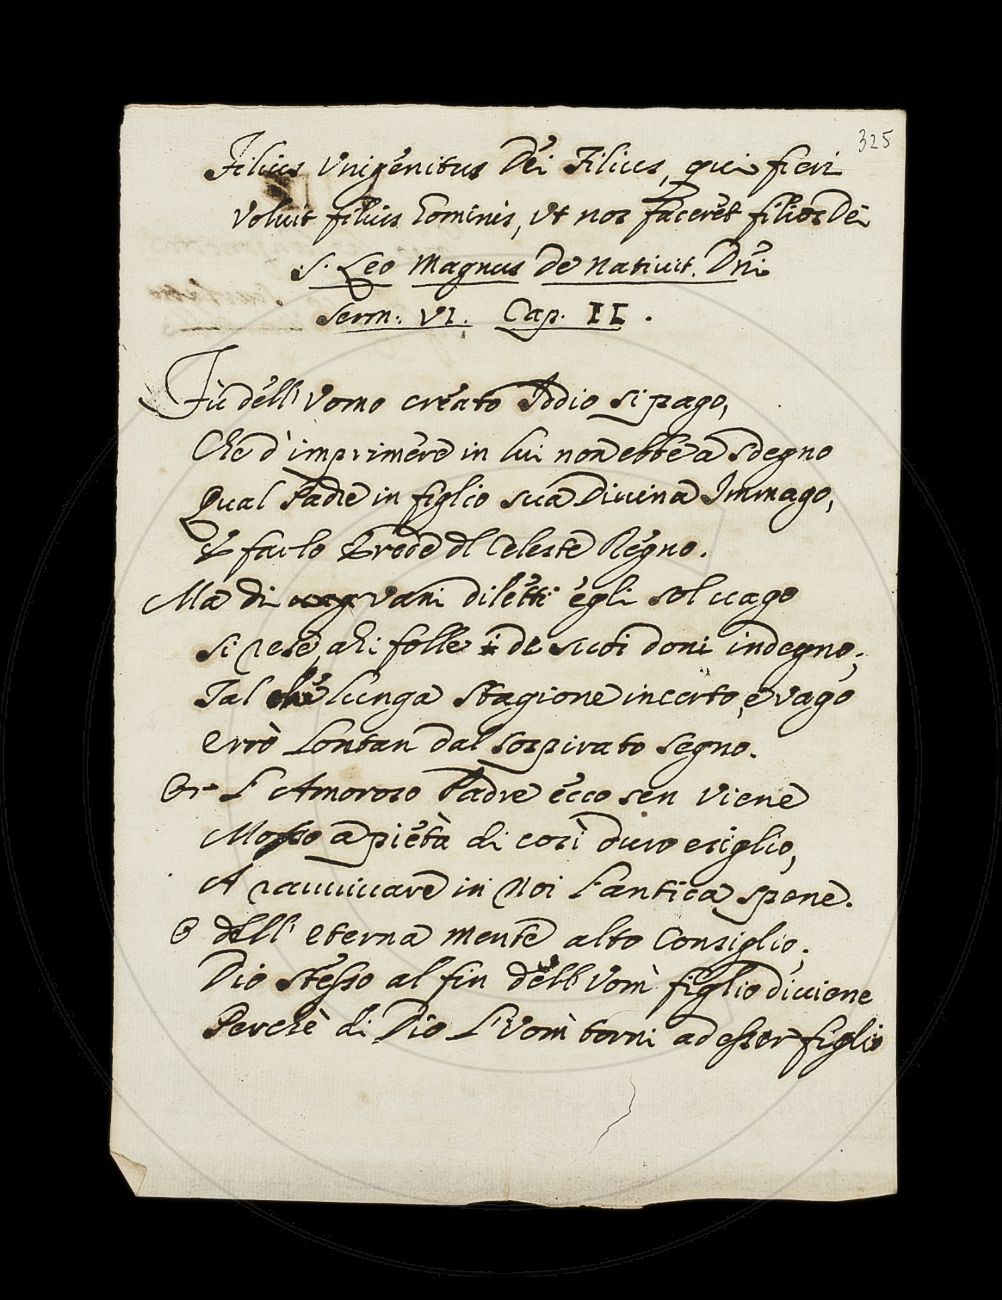 325
Filius Unigenitus Dei Filius, qui fieri
voluit filius hominis, ut nos faceret filios Dei
S. Leo Magnus de Nativit. Dñi
Serm. VI. Cap. II.
Fù dell' Uomo creato Iddio si pago,
Che d' imprimere in lui non ebbe a sdegno
Qual Padre in figlio sua Divina Immago,
E farlo Erede del Celeste Regno.
Ma di vani diletti egli sol vago
Si rese, ahi folle de suoi doni indegno;
Tal che lunga stagione incerto, e vago
Errò lontan dal sospirato segno.
Or L' Amoroso Padre ecco sen viene
Mosso a pietà di così duro esiglio,
A ravvivare in noi l'antica spene.
O dell' eterna mente alto Consiglio;
Dio stesso al fin dell' Uom figlio diviene
Perchè di Dio L'Uom torni ad esser figlio